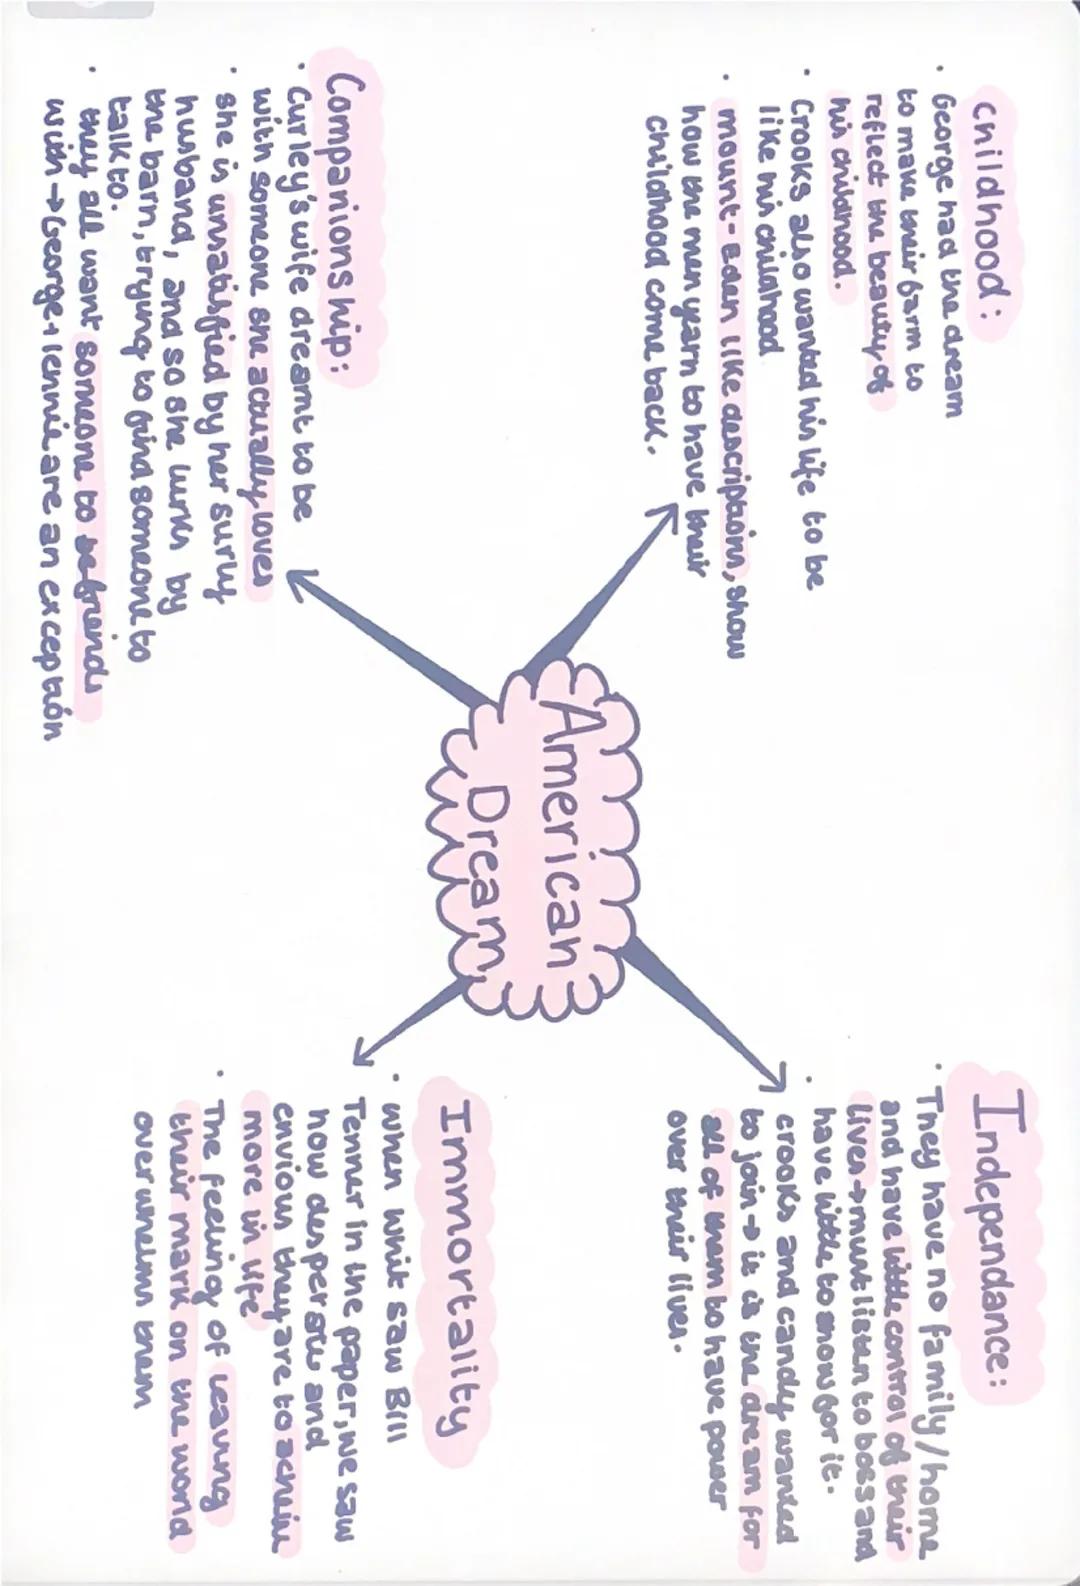 American
Dream
Childhood:
· George had the dream
to make their farm to
reflect the beauty of
his childhood.
· Crooks also wanted his life to be
like his childhood
· mount-Eden like descriptions, show
how the men yearn to have their
childhood come back.
Independance:
· They have no family/home
and have little control of their
lives→must listen to boss and
have little to show for it.
· crooks and candy wanted
to join→ it is the dream for
all of them to have power
over their lives.
Companionship:
· Curley's wife dreamt to be
with someone she actually loves
· she is unsatisfied by her surly
husband, and so she lurks by
the barn, trying to find someone to
talk to.
· they all want someone to be friends
with→George + lennie are an exception
Immortality
· when whit saw Bill
Tenner in the paper, we saw
how desperate and
envious they are to acheive
more in life
· The feeling of leaving
their mark on the world
overwhelms them